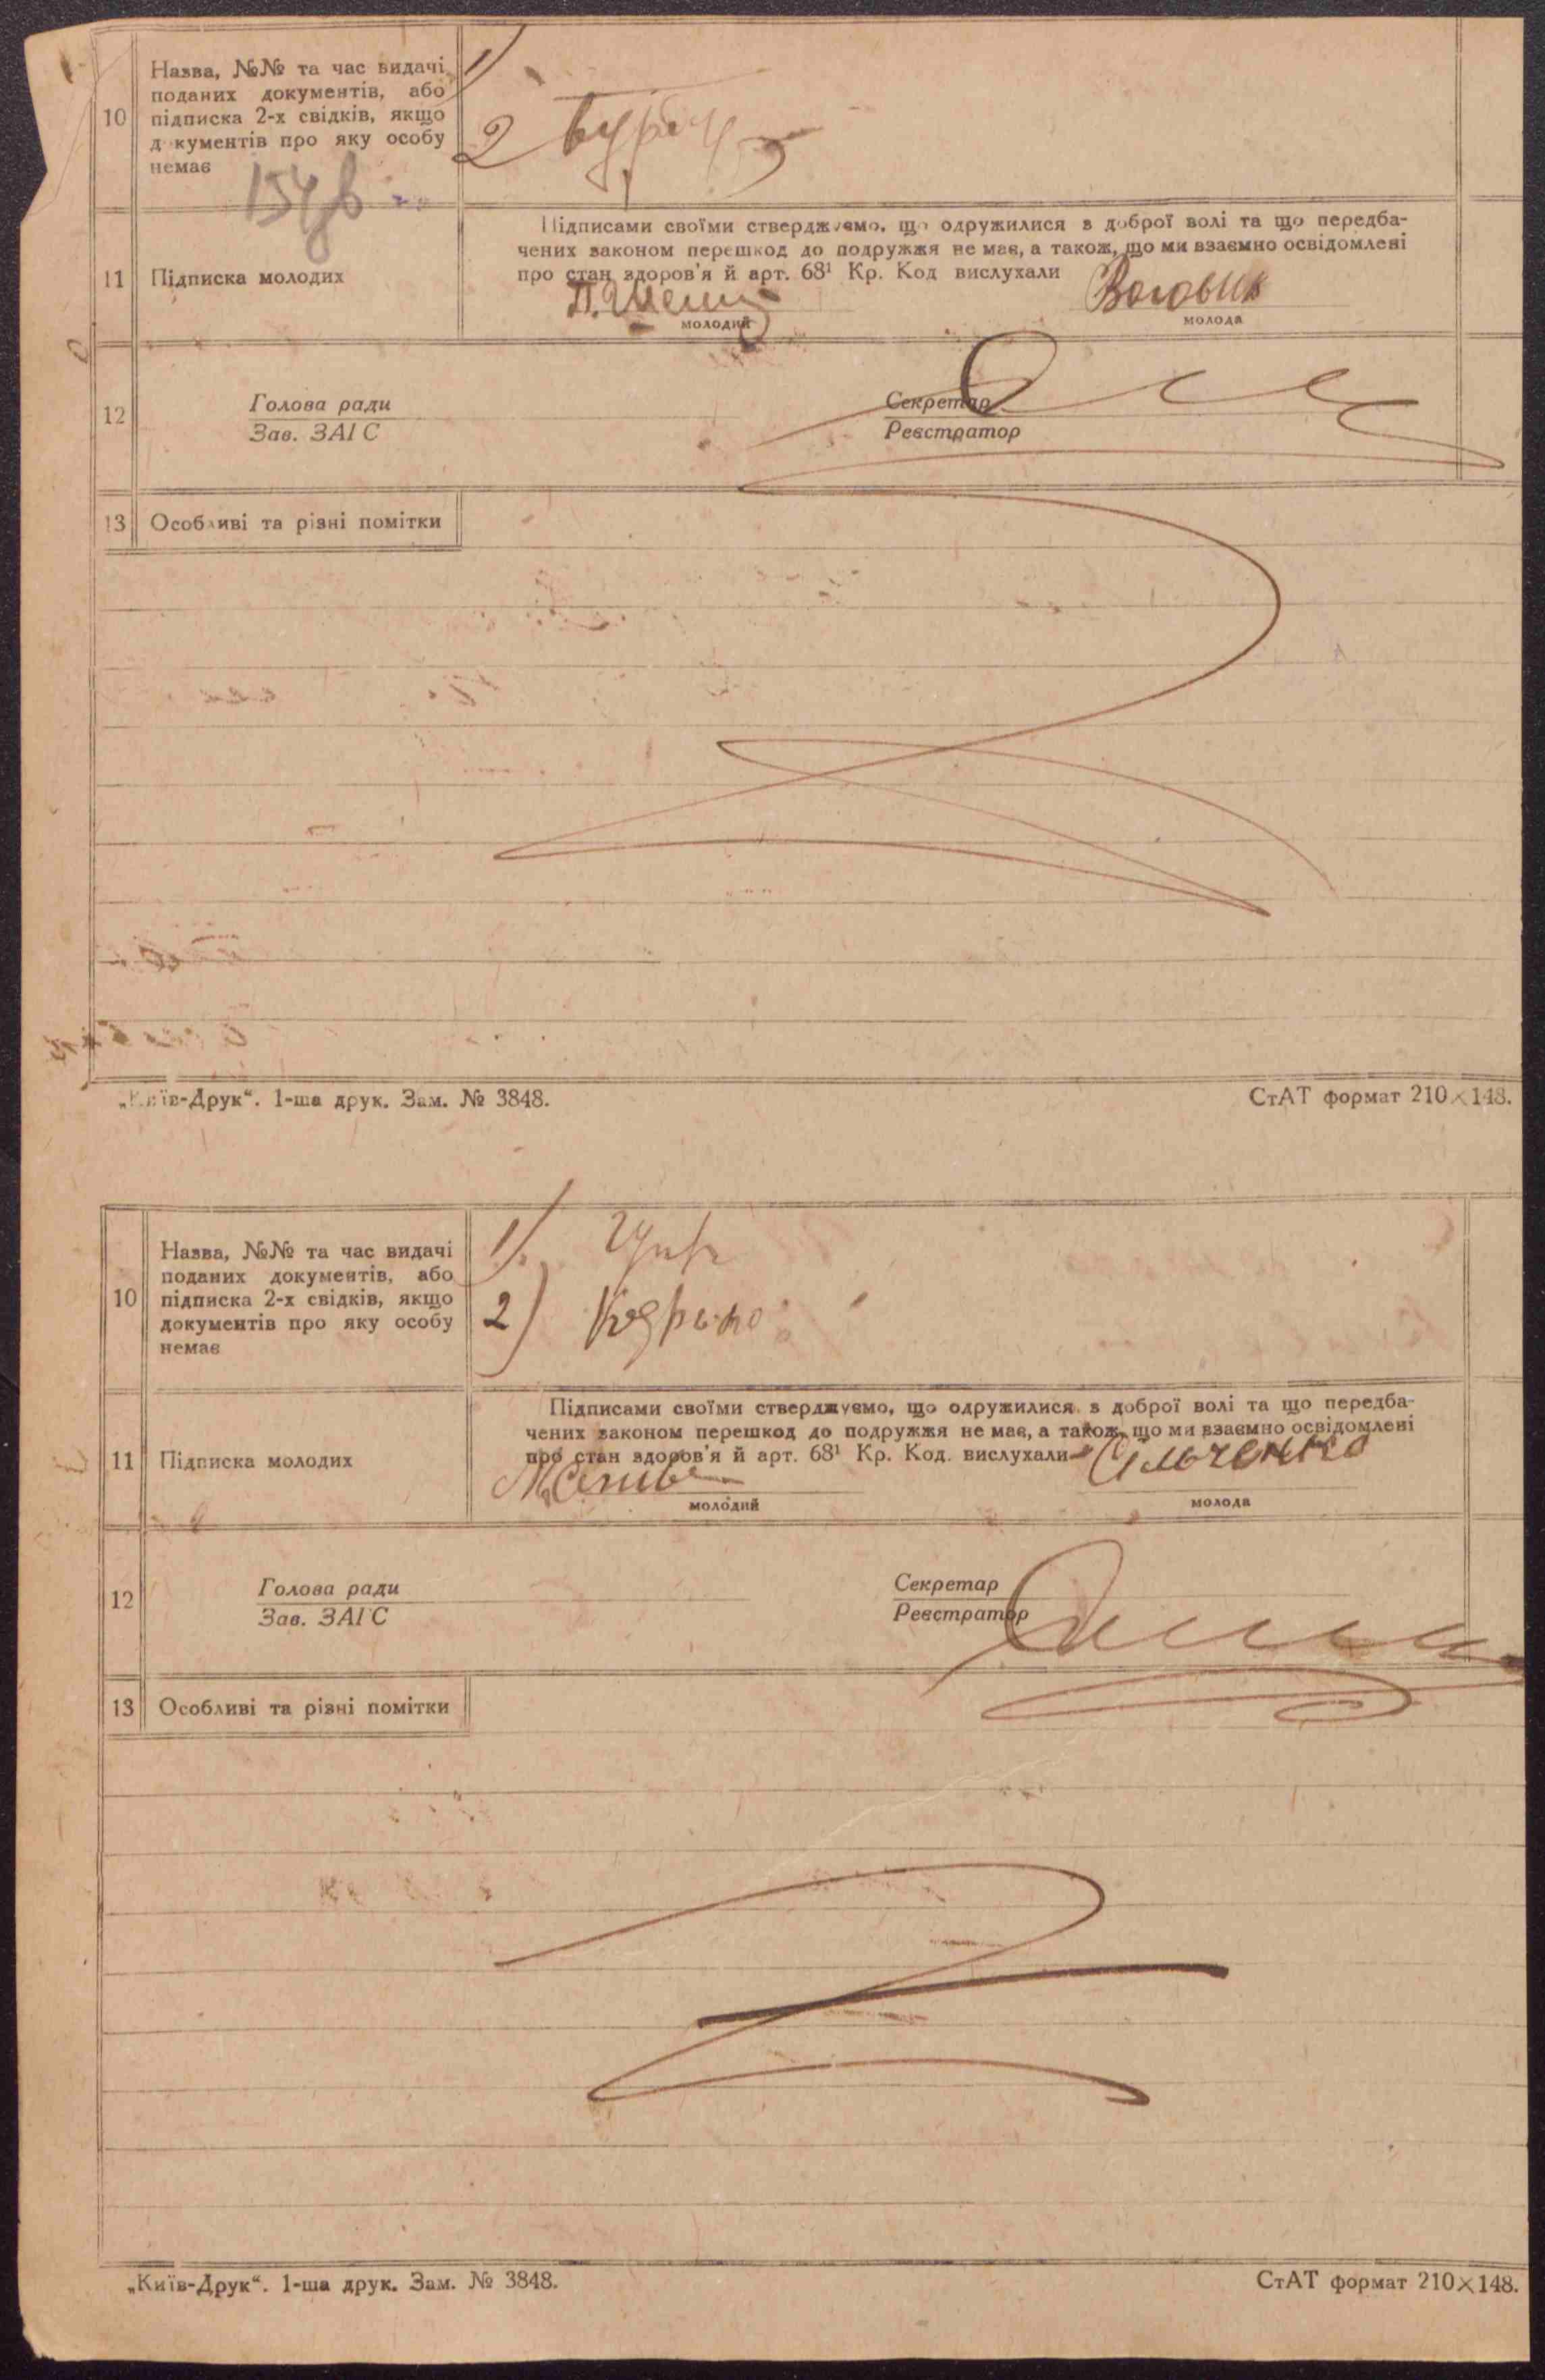 10
Назва, №№ та час видачі
поданих документів, або
підписка 2-х свідків, якщо
д кументів про яку особу
немає
1)
2
11
Підписка молодих
Підписами своїми стверджуємо, що одружилися з доброї волі та що передба-
чених законом перешкод до подружжя не має, а також, що ми взаємно освідомлені
про стан здоров'я й арт. 68¹ Кр. Код вислухали
молодий
молода
12
Голова ради
Зав. ЗАГС
Секретар
Реєстратор
13
Особливі та різні помітки
„Київ-Друк“. 1-ша друк. Зам. № 3848.
СтАТ формат 210×148.
10
Назва, №№ та час видачі
поданих документів, або
підписка 2-х свідків, якщо
документів про яку особу
немає
1)
2)
11
Підписка молодих
Підписами своїми стверджуємо, що одружилися з доброї волі та що передба-
чених законом перешкод до подружжя не має, а також, що ми взаємно освідомлені
про стан здоров'я й арт. 68¹ Кр. Код. вислухали
Ільченко
молодий
молода
12
Голова ради
Зав. ЗАГС
Секретар
Реєстратор
13
Особливі та різні помітки
„Київ-Друк“. 1-ша друк. Зам. № 3848.
СтАТ формат 210×148.